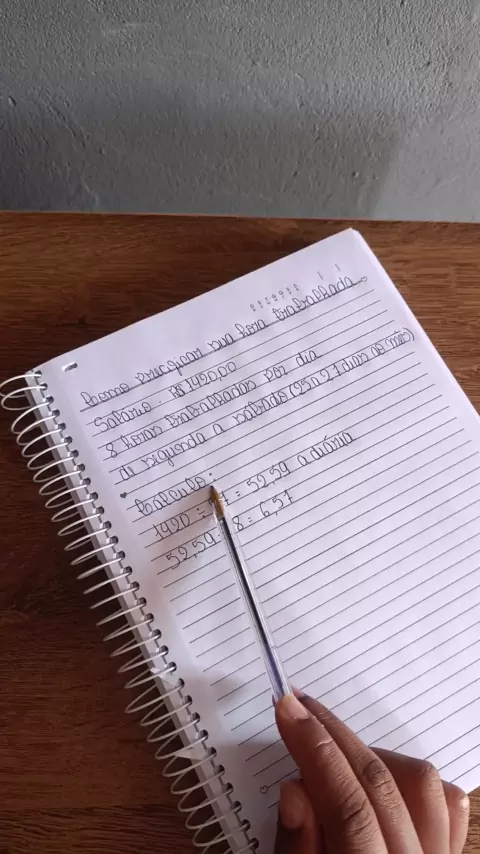 Como precificar sua hora trabalhada
Salário - R$ 1420,00
8 horas trabalhadas por dia
de segunda a sábado (25 a 27 dias ao mês)
Cálculo:
1420 ÷ 27 = 52,59 a diária
52,59 ÷ 8 = 6,57